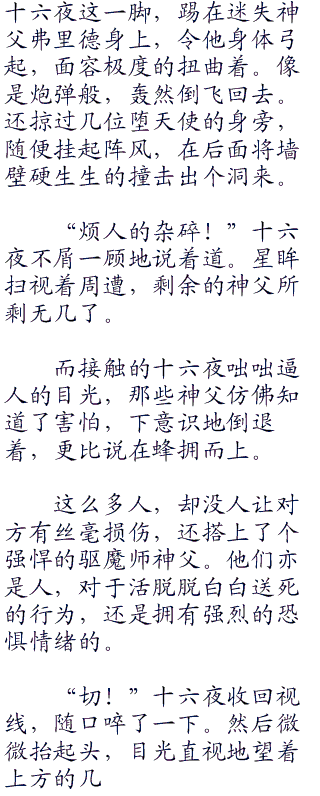 十六夜这一脚，踢在迷失神
父弗里德身上，令他身体弓
起，面容极度的扭曲着。像
是炮弹般，轰然倒飞回去。
还掠过几位堕天使的身旁，
随便挂起阵风，在后面将墙
壁硬生生的撞击出个洞来。
“烦人的杂碎！”十六
夜不屑一顾地说着道。星眸
扫视着周遭，剩余的神父所
剩无几了。
而接触的十六夜咄咄逼
人的目光，那些神父仿佛知
道了害怕，下意识地倒退
着，更比说在蜂拥而上。
这么多人，却没人让对
方有丝毫损伤，还搭上了个
强悍的驱魔师神父。他们亦
是人，对于活脱脱白白送死
的行为，还是拥有强烈的恐
惧情绪的。
“切！”十六夜收回视
线，随口啐了一下。然后微
微抬起头，目光直视地望着
上方的几